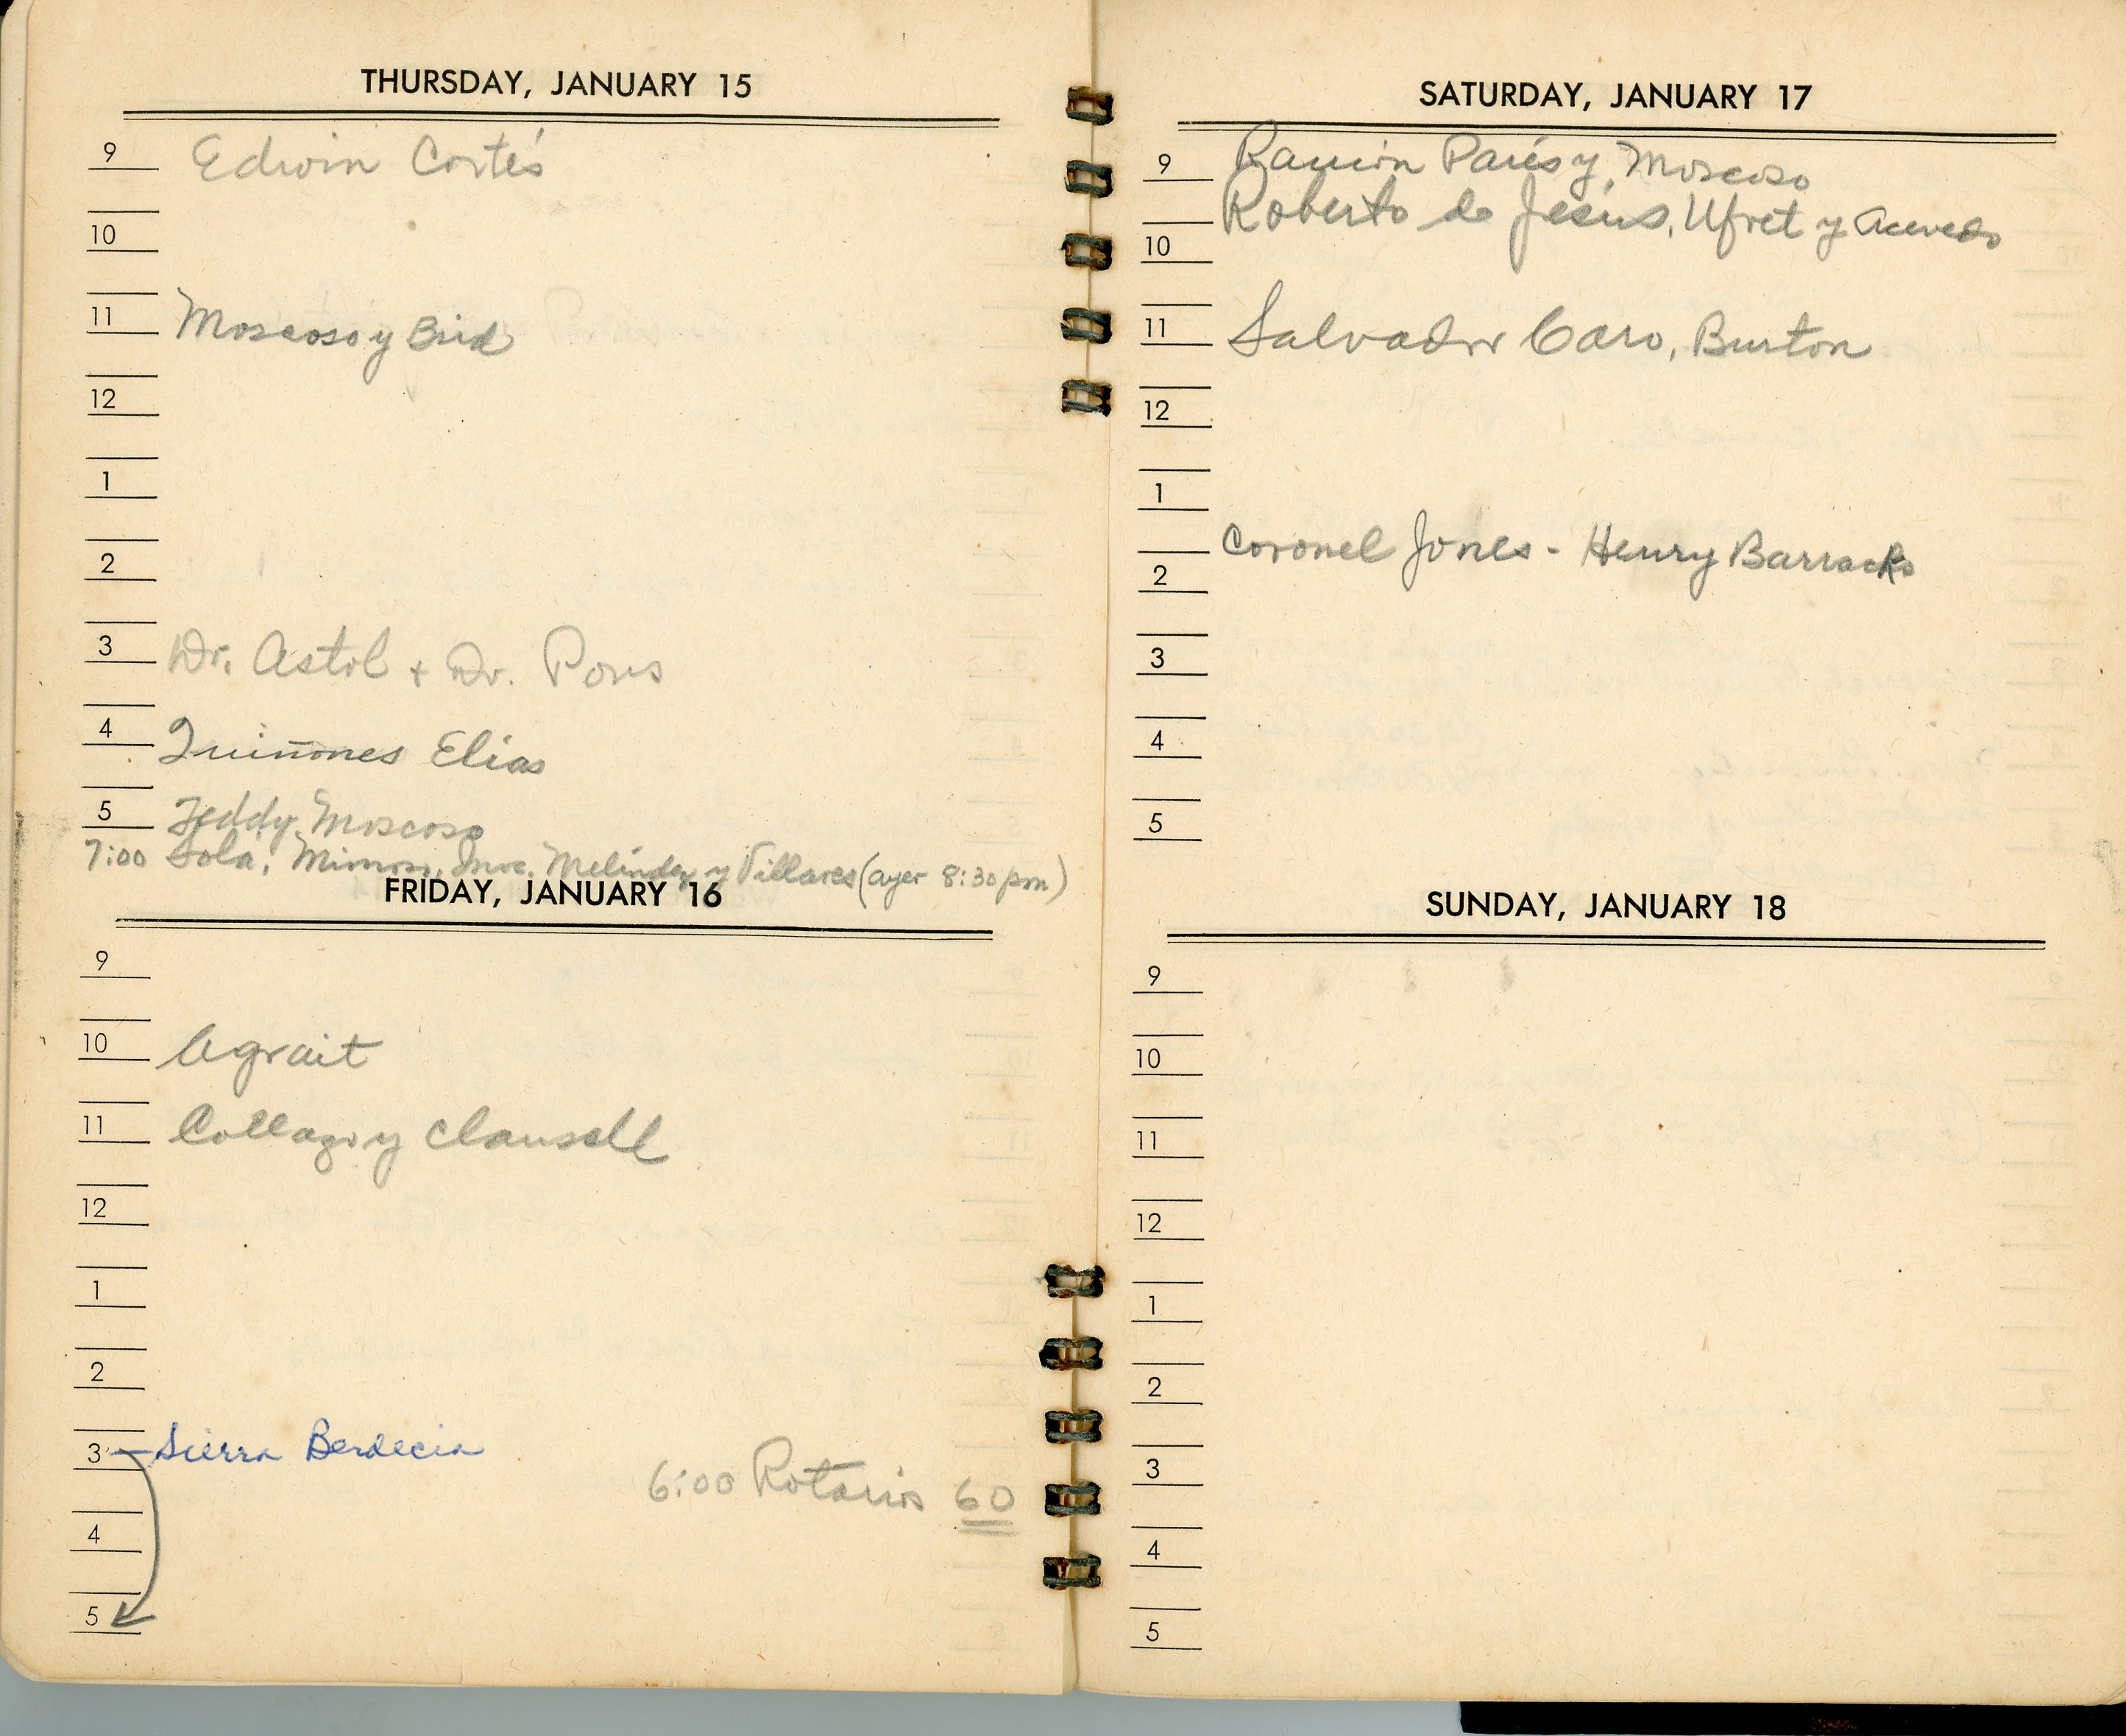 THURSDAY, JANUARY 15
9 Edwin Cortés
10
11 Moscoso y Bird
12
1
2
3 Dr. Astol + Dr. Pons
4 Quiñones Elias
5 Teddy Moscoso
7:00 Sola, Mimoso, Meléndez y Villares (ayer 8:30 pm)
FRIDAY, JANUARY 16
9
10 Agrait
11 Collazo y Clausell
12
1
2
3 Sierra Berdecia
6:00 Rotarios 60
4
5
SATURDAY, JANUARY 17
9 Ramón Parés y Moscoso
Roberto de Jesús, Ufret y Acevedo
10
11 Salvador Caro, Burton
12
1
Coronel Jones - Henry Barracks
2
3
4
5
SUNDAY, JANUARY 18
9
10
11
12
1
2
3
4
5